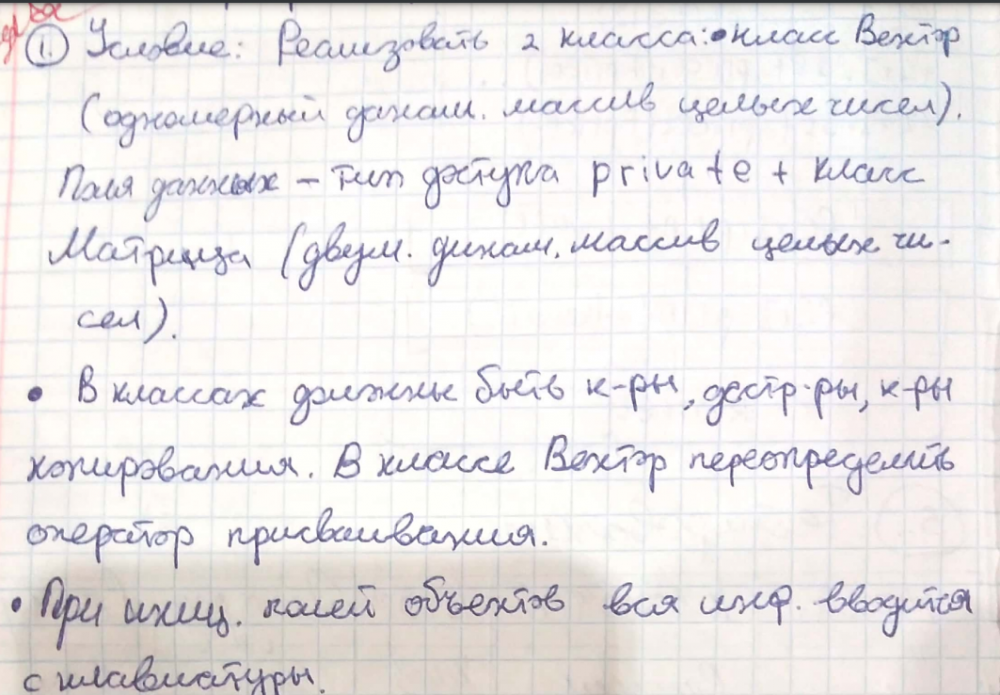 1. Условие: Реализовать 2 класса: • класс Вектор
(одномерный динам. массив целых чисел).
Поля данных – тип доступа private + класс
Матрица (двум. динам. массив целых чи-
сел).
• В классах должны быть к-ры, дестр-ры, к-ры
копирования. В классе Вектор переопределить
оператор присваивания.
• При иниц. полей объектов вся инф. вводится
с клавиатуры.